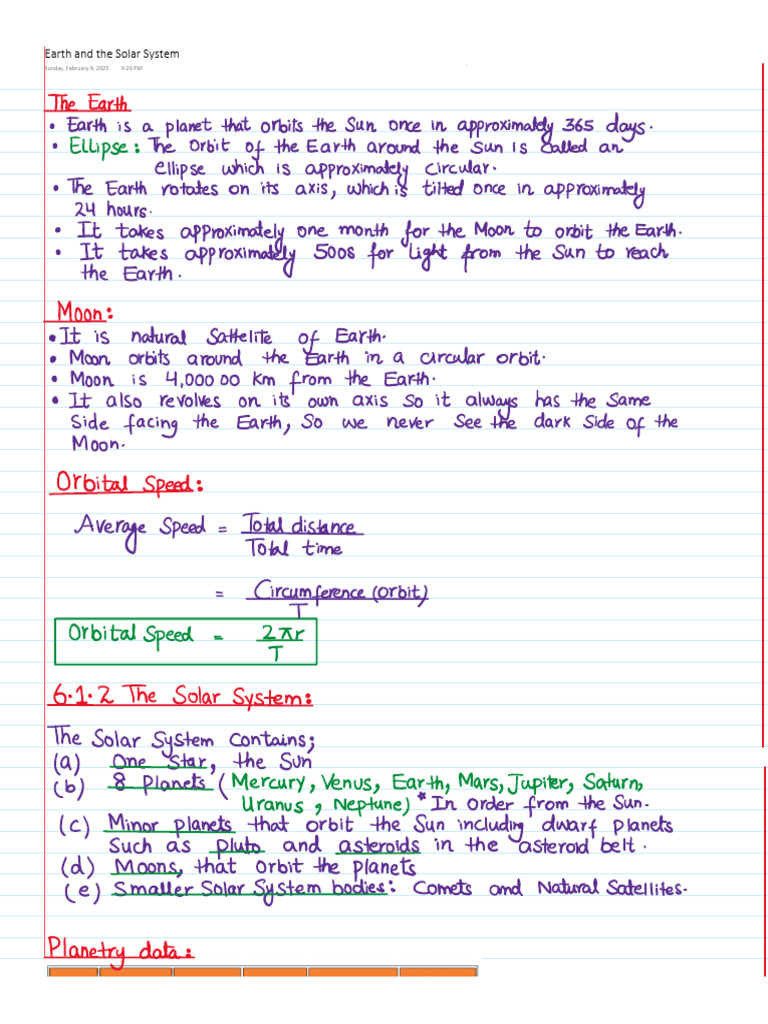 Earth and the Solar System
Sunday, February 9, 2025 9:29 PM
The Earth
• Earth is a planet that orbits the Sun once in approximately 365 days.
• Ellipse: The Orbit of the Earth around the Sun is called an
ellipse which is approximately circular.
• The Earth rotates on its axis, which is tilted once in approximately
24 hours.
• It takes approximately one month for the Moon to orbit the Earth.
• It takes approximately 500s for light from the Sun to reach
the Earth.
Moon:
• It is natural Sattelite of Earth.
• Moon orbits around the Earth in a circular orbit.
• Moon is 4,000 00 km from the Earth.
• It also revolves on its own axis so it always has the Same
Side facing the Earth, So we never See the dark Side of the
Moon.
Orbital Speed:
Average Speed = Total distance
Total time
= Circumference (orbit)
T
Orbital Speed = 2πr
T
6.1.2 The Solar System:
The Solar System contains;
(a) One Star, the Sun
(b) 8 Planets (Mercury, Venus, Earth, Mars, Jupiter, Saturn,
Uranus, Neptune) * In order from the Sun.
(c) Minor planets that orbit the Sun including dwarf planets
Such as pluto and asteroids in the asteroid belt.
(d) Moons, that orbit the planets
(e) Smaller Solar System bodies: Comets and Natural Satellites.
Planetry data: